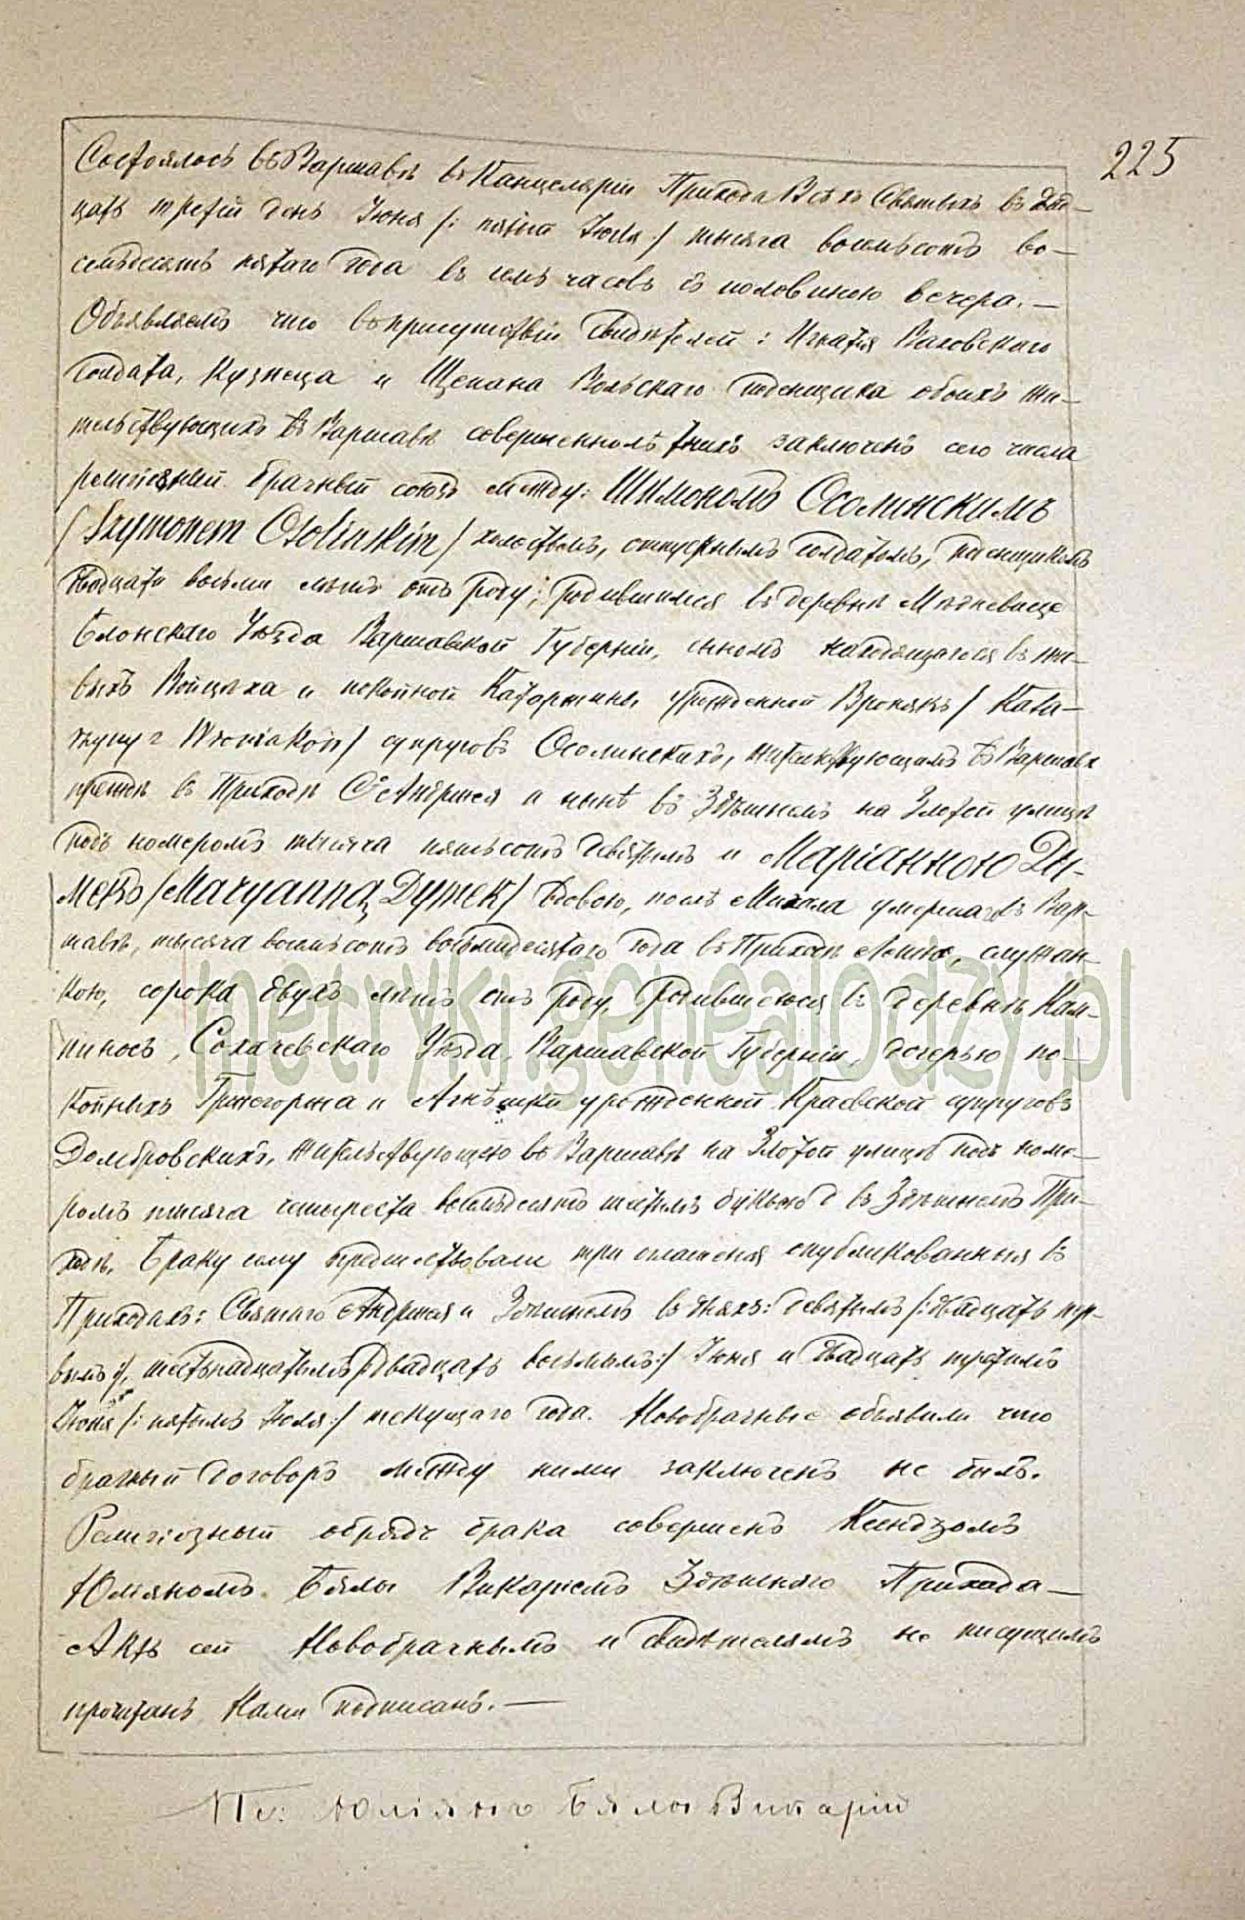 225
Состоялось въ Варшавѣ въ Канцеляріи Прихода Всѣхъ Святыхъ въ двад-
цать третій день Іюня /: пятый Іюля :/ тысяча восемьсотъ во-
семьдесятъ пятаго года въ семь часовъ съ половиною вечера. —
Объявляемъ что въ присутствіи свидѣтелей: Игнатія
солдата, кузнеца и Щепана Вольскаго поденщика обоихъ жи-
тельствующихъ въ Варшавѣ совершеннолѣтнихъ заключенъ сего числа
религіозный брачный союзъ между: Шимономъ Осолинскимъ
/Szymonem Osolinskim/ холостымъ, отпускнымъ солдатомъ, поденщикомъ
двадцати восьми лѣтъ отъ роду, родившимся въ деревнѣ
Блонскаго Уѣзда Варшавской Губерніи, сыномъ находящагося въ жи-
выхъ Войцѣха и покойной Катаржины урожденной Вронякъ /Kata-
rzyny z Wroniaków/ супруговъ Осолинскихъ, жительствующимъ въ Варшавѣ
прежде въ Приходѣ Св Андржея а нынѣ въ Здѣшнемъ на Злотой улицѣ
подъ номеромъ тысяча пятьсотъ девятымъ и Маріанною Ды-
мекъ /Maryanną Dymek/ вдовою, послѣ Михала умершаго въ Вар-
шавѣ, тысяча восемьсотъ восьмидесятаго года въ Приходѣ служан-
кою, сорока двухъ лѣтъ отъ роду, родившеюся въ деревнѣ Кам-
пиносъ, Сохачевскаго Уѣзда, Варшавской Губерніи, дочерью по-
койныхъ Гржегоржа и Агнѣшки урожденной Краевской супруговъ
Домбровскихъ, жительствующею въ Варшавѣ на Злотой улицѣ подъ номе-
ромъ тысяча четыреста восемьдесятъ шестымъ буквою въ Здѣшнемъ При-
ходѣ. Браку сему предшествовали три оглашенія опубликованныя въ
Приходахъ: Святаго Андржея и Здѣшнемъ въ дняхъ: девятымъ /: двадцать пер-
вымъ :/, шестьнадцатымъ /: двадцать восьмымъ :/ Іюня и двадцать третьимъ
Іюня /: пятымъ Іюля :/ текущаго года. Новобрачные объявили что
брачный договоръ между ними заключенъ не былъ.
Религіозный обрядъ брака совершенъ Ксендзомъ
Юліяномъ Бялы Викаріемъ Здѣшняго Прихода —
Актъ сей Новобрачнымъ и свидѣтелямъ не пишущимъ
прочитанъ Нами подписанъ. —
Кс: Юліянъ Бялы Викарій
metryki.genealodzy.pl